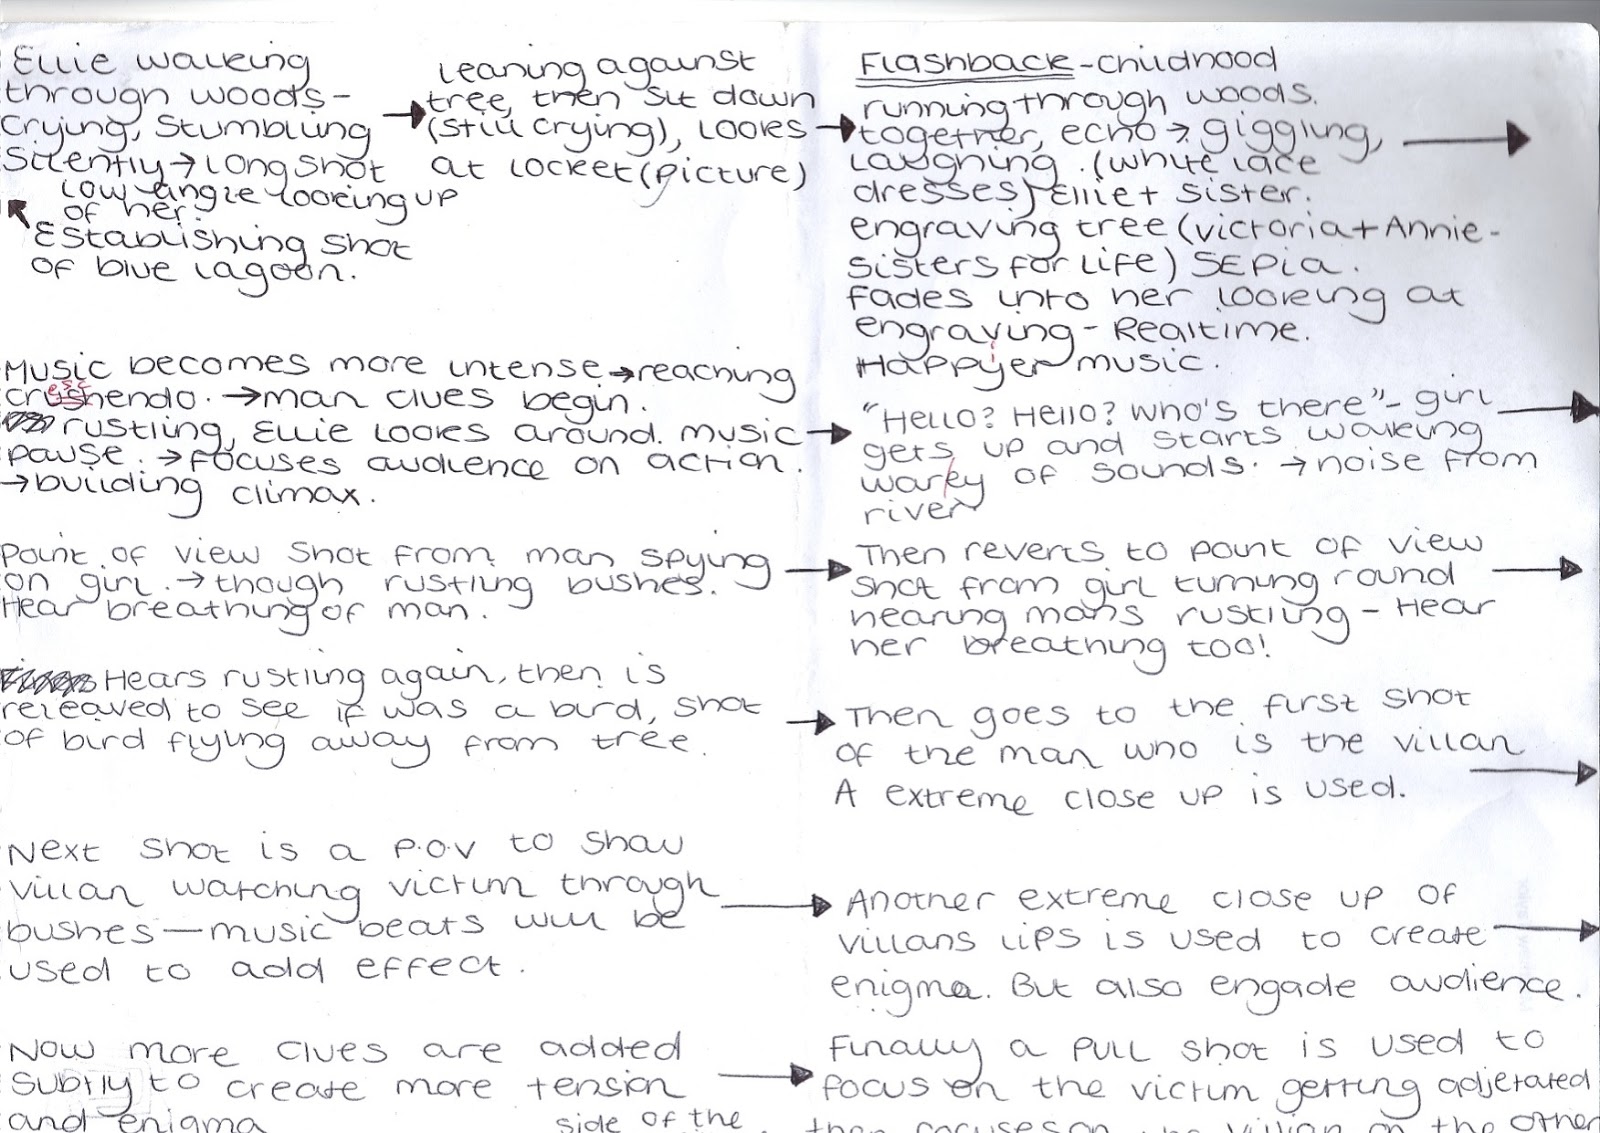 Ellie walking
through woods -
crying, stumbling
silently → long shot
low angle looking up
of her.
Establishing shot
of blue lagoon.
leaning against
tree, then sit down
(still crying), looks
at locket (picture)
Flashback - childhood
running through woods.
together, echo → giggling,
laughing. (white lace
dresses) Ellie + sister.
engraving tree (victoria + Annie -
sisters for life) SEPIA.
fades into her looking at
engraving - Realtime.
Happier music.
Music becomes more intense → reaching
creschendo. → man clues begin.
rustling, Ellie looks around. music
pause. → focuses audience on action.
→ building climax.
"Hello? Hello? who's there" - girl
gets up and starts walking
warey of sounds. → noise from
river
Point of view shot from man spying
on girl. → though rustling bushes.
Hear breathing of man.
Then reverts to point of view
shot from girl turning round
hearing mans rustling - Hear
her breathing too!
Hears rustling again, then is
releaved to see if was a bird, shot
of bird flying away from tree.
Then goes to the first shot
of the man who is the villan
A extreme close up is used.
Next shot is a P.O.V to show
villan watching victim through
bushes - music beats will be
used to add effect.
Another extreme close up of
villans lips is used to create
enigma. But also engade audience.
Now more clues are added
subtly to create more tension
and enigma
Finally a pull shot is used to
focus on the victim getting adjetated
then focuses on the villan on the other
side of the